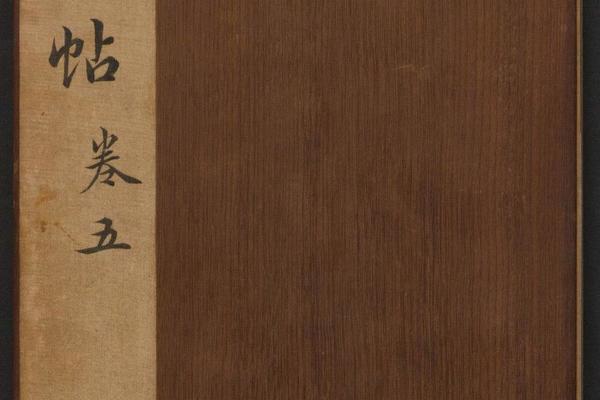 帖 卷五